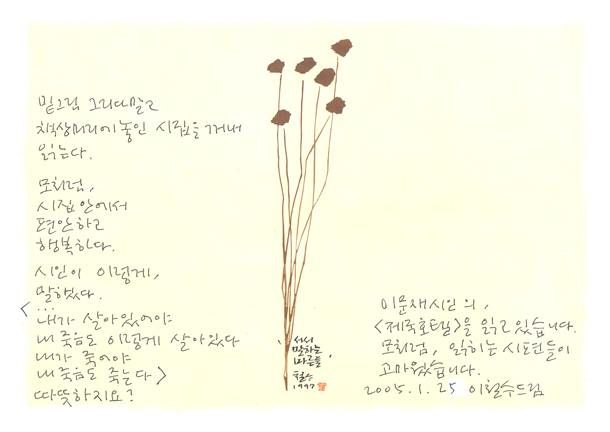 밑그림 그리다말고
책상머리에 놓인 시집을 꺼내
읽는다.
모처럼,
시집 안에서
편안하고
행복하다.
시인이 이렇게,
말했다.
<...
내가 살아있어야
내 죽음도 이렇게 살아있다
내가 죽어야
내 죽음도 죽는다>
따뜻하지요?
서서
말하는
마른풀
철수
1997
이문재시인의,
<제국호텔>을 읽고 있습니다.
모처럼, 읽히는 시편들이
고마웠습니다.
2005.1.25 이철수드림